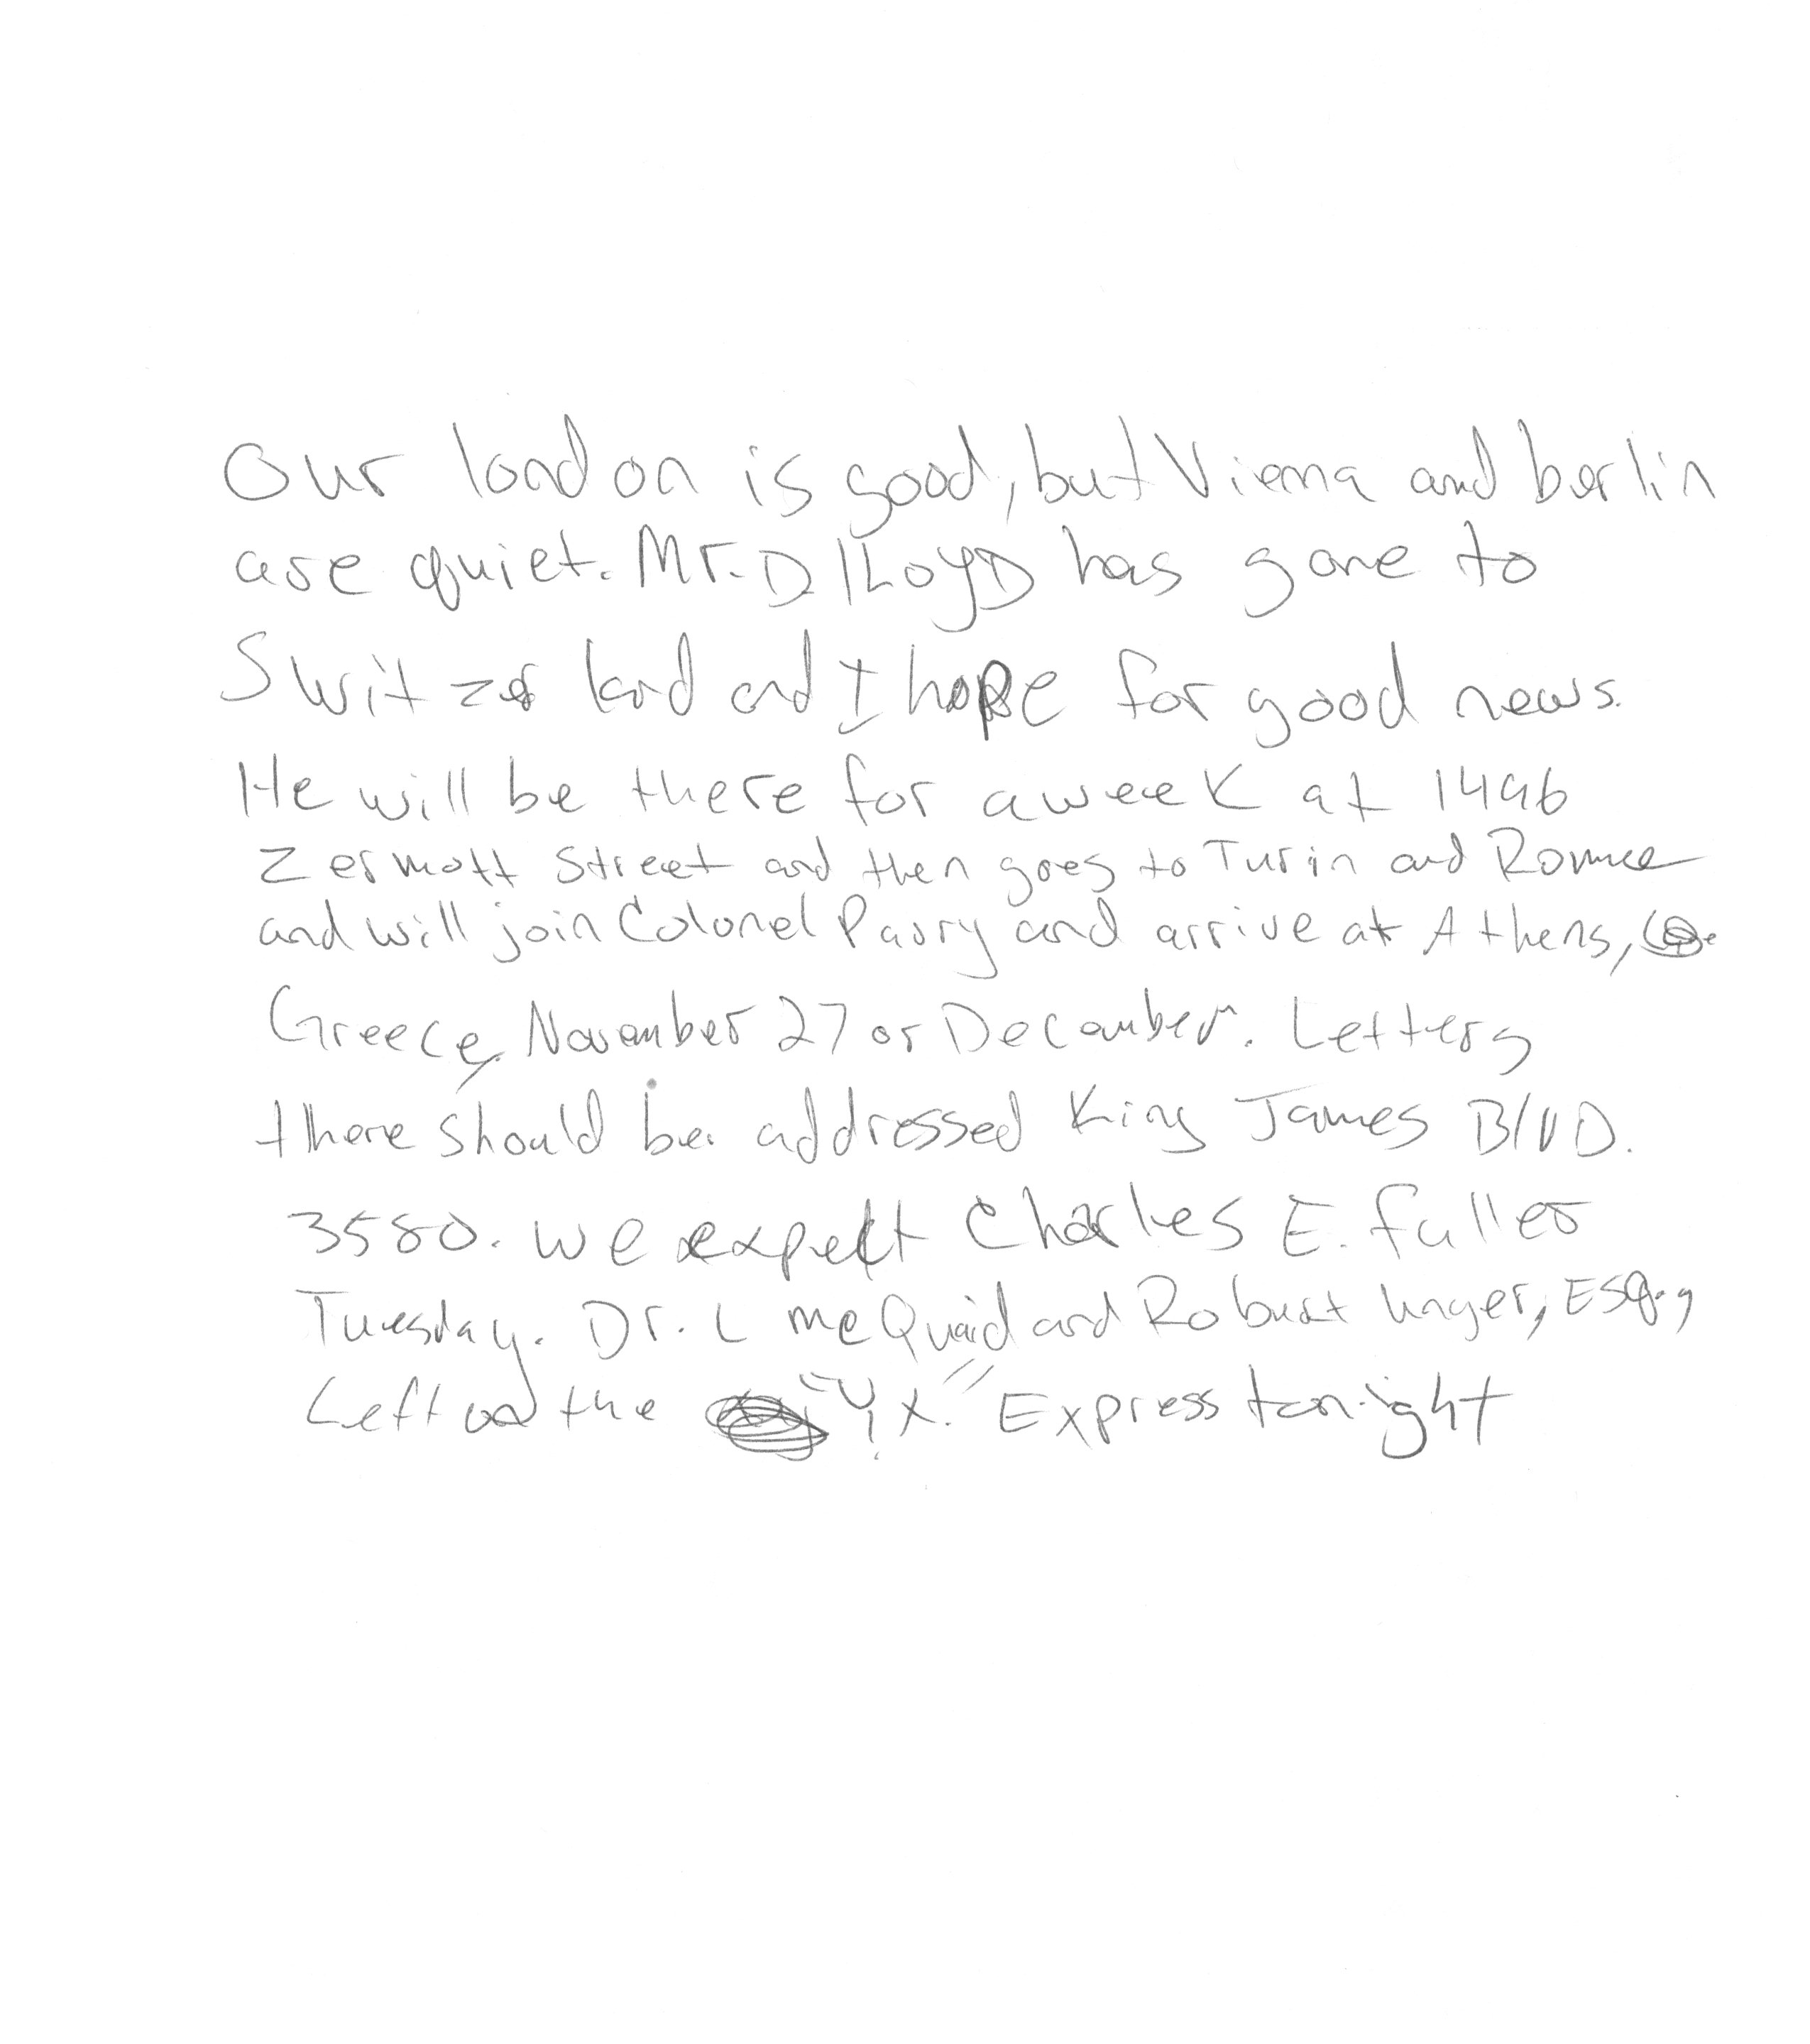 Our london is good, but Vienna and berlin
are quiet. Mr. D. lLoyD has gone to
Switzer land and I hope for good news.
He will be there for a week at 1496
Zermott Street and then goes to Turin and Rome
and will join Colonel Parry and arrive at Athens,
Greece, November 27 or December. Letters
there should be. addressed King James BlVD.
3580. we expect Charles E. fuller
Tuesday. Dr. L mcQuaid and Robert Unger, ESQ.,
Left on the "Y.X." Express tonight